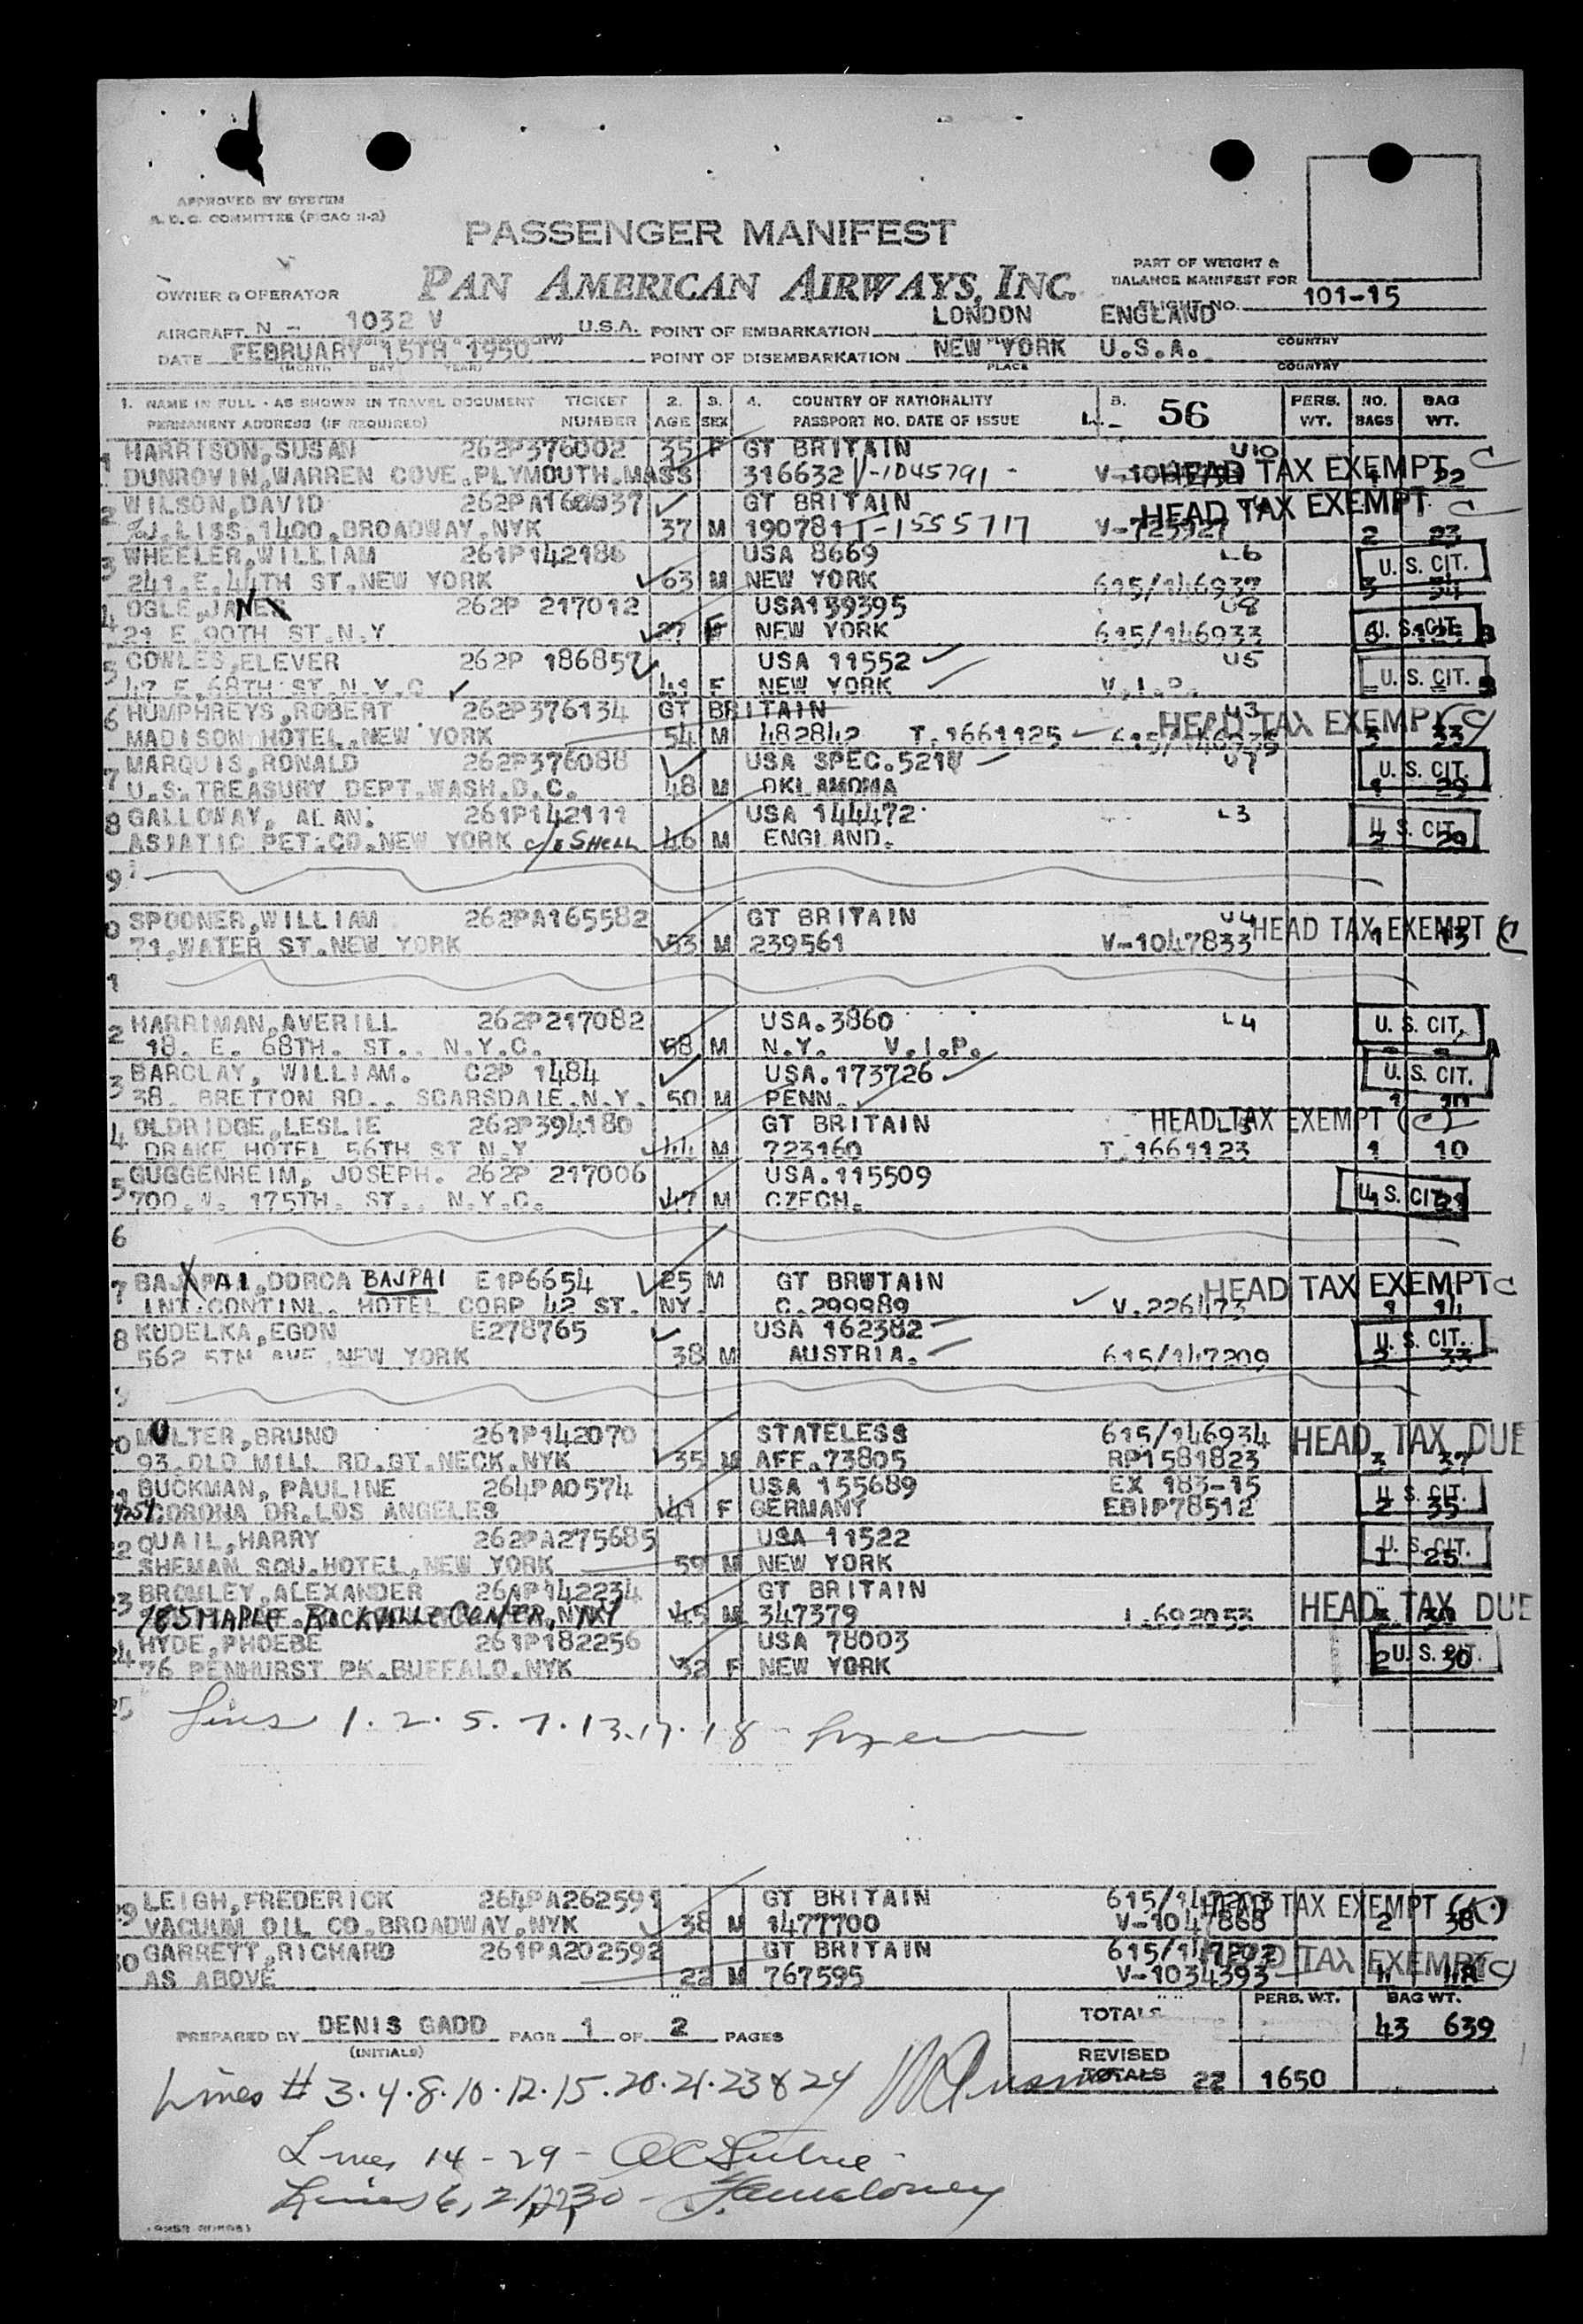 APPROVED BY SYSTEM
A. D. C. COMMITTEE (PICAO 11-2)
PASSENGER MANIFEST
PAN AMERICAN AIRWAYS, INC.
PART OF WEIGHT &
BALANCE MANIFEST FOR
OWNER & OPERATOR
FLIGHT NO. 101-15
AIRCRAFT N - 1032 V U.S.A. POINT OF EMBARKATION LONDON ENGLAND COUNTRY
DATE FEBRUARY 15TH 1950 POINT OF DISEMBARKATION NEW YORK U.S.A.
(MONTH DAY YEAR) PLACE COUNTRY
1. NAME IN FULL - AS SHOWN IN TRAVEL DOCUMENT TICKET 2. 3. 4. COUNTRY OF NATIONALITY 5. 56 PERS. NO. BAG
PERMANENT ADDRESS (IF REQUIRED) NUMBER AGE SEX PASSPORT NO. DATE OF ISSUE WT. BAGS WT.
1 HARRISON,SUSAN 262P376002 35 F GT BRITAIN U10
DUNROVIN,WARREN COVE.PLYMOUTH.MASS 316632 V-1045791 HEAD TAX EXEMPT 22 C
2 WILSON,DAVID 262PA160037 GT BRITAIN HEAD TAX EXEMPT C
J.LISS,1400,BROADWAY.NYK 37 M 190781 T-1555717 V-723927 2 23
3 WHEELER,WILLIAM 261P142186 USA 8669 L6 U. S. CIT.
241.E.44TH ST.NEW YORK 63 M NEW YORK 615/146937 3 34
4 OGLE,JANE 262P 217012 USA139395 U8
21 E.90TH ST.N.Y 27 F NEW YORK 615/146933 U. S. CIT.
5 COWLES,ELEVER 262P 186857 USA 11552 U5
47 E.68TH ST.N.Y.C 41 F NEW YORK V.I.P. U. S. CIT.
6 HUMPHREYS,ROBERT 262P376134 GT BRITAIN U3 HEAD TAX EXEMPT (C)
MADISON HOTEL.NEW YORK 54 M 482842 T.1661125 3 33
7 MARQUIS,RONALD 262P376088 USA SPEC.5218 U7 U. S. CIT.
U.S.TREASURY DEPT.WASH.D.C. 48 M OKLAMOMA 1 29
8 GALLOWAY, ALAN. 261P142111 USA 144472 L3 U. S. CIT.
ASIATIC PET.CO.NEW YORK c/o SHELL 46 M ENGLAND. 2 29
9
0 SPOONER,WILLIAM 262PA165582 GT BRITAIN U4 HEAD TAX EXEMPT C
71,WATER ST.NEW YORK 53 M 239561 V-1047833 1 13
1
2 HARRIMAN,AVERILL 262P217082 USA.3860 L4 U. S. CIT.
18. E. 68TH. ST.. N.Y.C. 58 M N.Y. V.I.P. A
3 BARCLAY, WILLIAM. C2P 1484 USA.173726 U. S. CIT.
38. BRETTON RD.. SCARSDALE.N.Y. 50 M PENN. 1 10
4 OLDRIDGE,LESLIE 262P394180 GT BRITAIN HEAD TAX EXEMPT (C)
DRAKE HOTEL 56TH ST N.Y 44 M 723160 T.1661123 1 10
5 GUGGENHEIM, JOSEPH. 262P 217006 USA.115509
700.W. 175TH. ST.. N.Y.C. 47 M CZECH. U. S. CIT. 21
6
7 BAJPAI,DORCA BAJPAI E1P6654 25 M GT BRITAIN HEAD TAX EXEMPT C
INT.CONTINL. HOTEL CORP 42 ST. NY. C.299989 V.226473 1 14
8 KUDELKA,EGON E278765 USA 162382 U. S. CIT.
562 5TH AVE.NEW YORK 38 M AUSTRIA. 615/147209 2 33
9
20 MOLTER,BRUNO 261P142070 STATELESS 615/146934 HEAD TAX DUE
93.OLD MILL RD.GT.NECK.NYK 35 M AFF.73805 RP1581823 3 37
21 BUCKMAN, PAULINE 264PA0574 USA 155689 EX 183-15 U. S. CIT.
4254 CORONA DR.LOS ANGELES 41 F GERMANY EBIP78512 2 35
22 QUAIL,HARRY 262PA275685 USA 11522 U. S. CIT.
SHEMAN SQU.HOTEL,NEW YORK 59 M NEW YORK 1 25
23 BROMLEY,ALEXANDER 261P142234 GT BRITAIN HEAD TAX DUE
785 MAPLE ROCKVILLE CENTER, NY 45 M 347379 I.692053
24 HYDE,PHOEBE 261P182256 USA 78003 U. S. CIT.
76 PENHURST PK.BUFFALO.NYK 32 F NEW YORK 2 30
25
Lines 1. 2. 5. 7. 13. 17. 18
29 LEIGH,FREDERICK 264PA262591 GT BRITAIN 615/147203 HEAD TAX EXEMPT
VACUUM OIL CO.BROADWAY.NYK 38 M 1477700 V-1047868 2 38
30 GARRETT,RICHARD 261PA202592 GT BRITAIN 615/147202 HEAD TAX EXEMPT C
AS ABOVE 22 M 767595 V-1034393
PREPARED BY DENIS GADD PAGE 1 OF 2 PAGES TOTALS PERS. WT. BAG WT. 43 639
(INITIALS)
REVISED TOTALS 22 1650
Lines # 3.4.8.10.12.15.20.21.23 & 24
Lines 14 - 29 -
Lines 6, 30 -